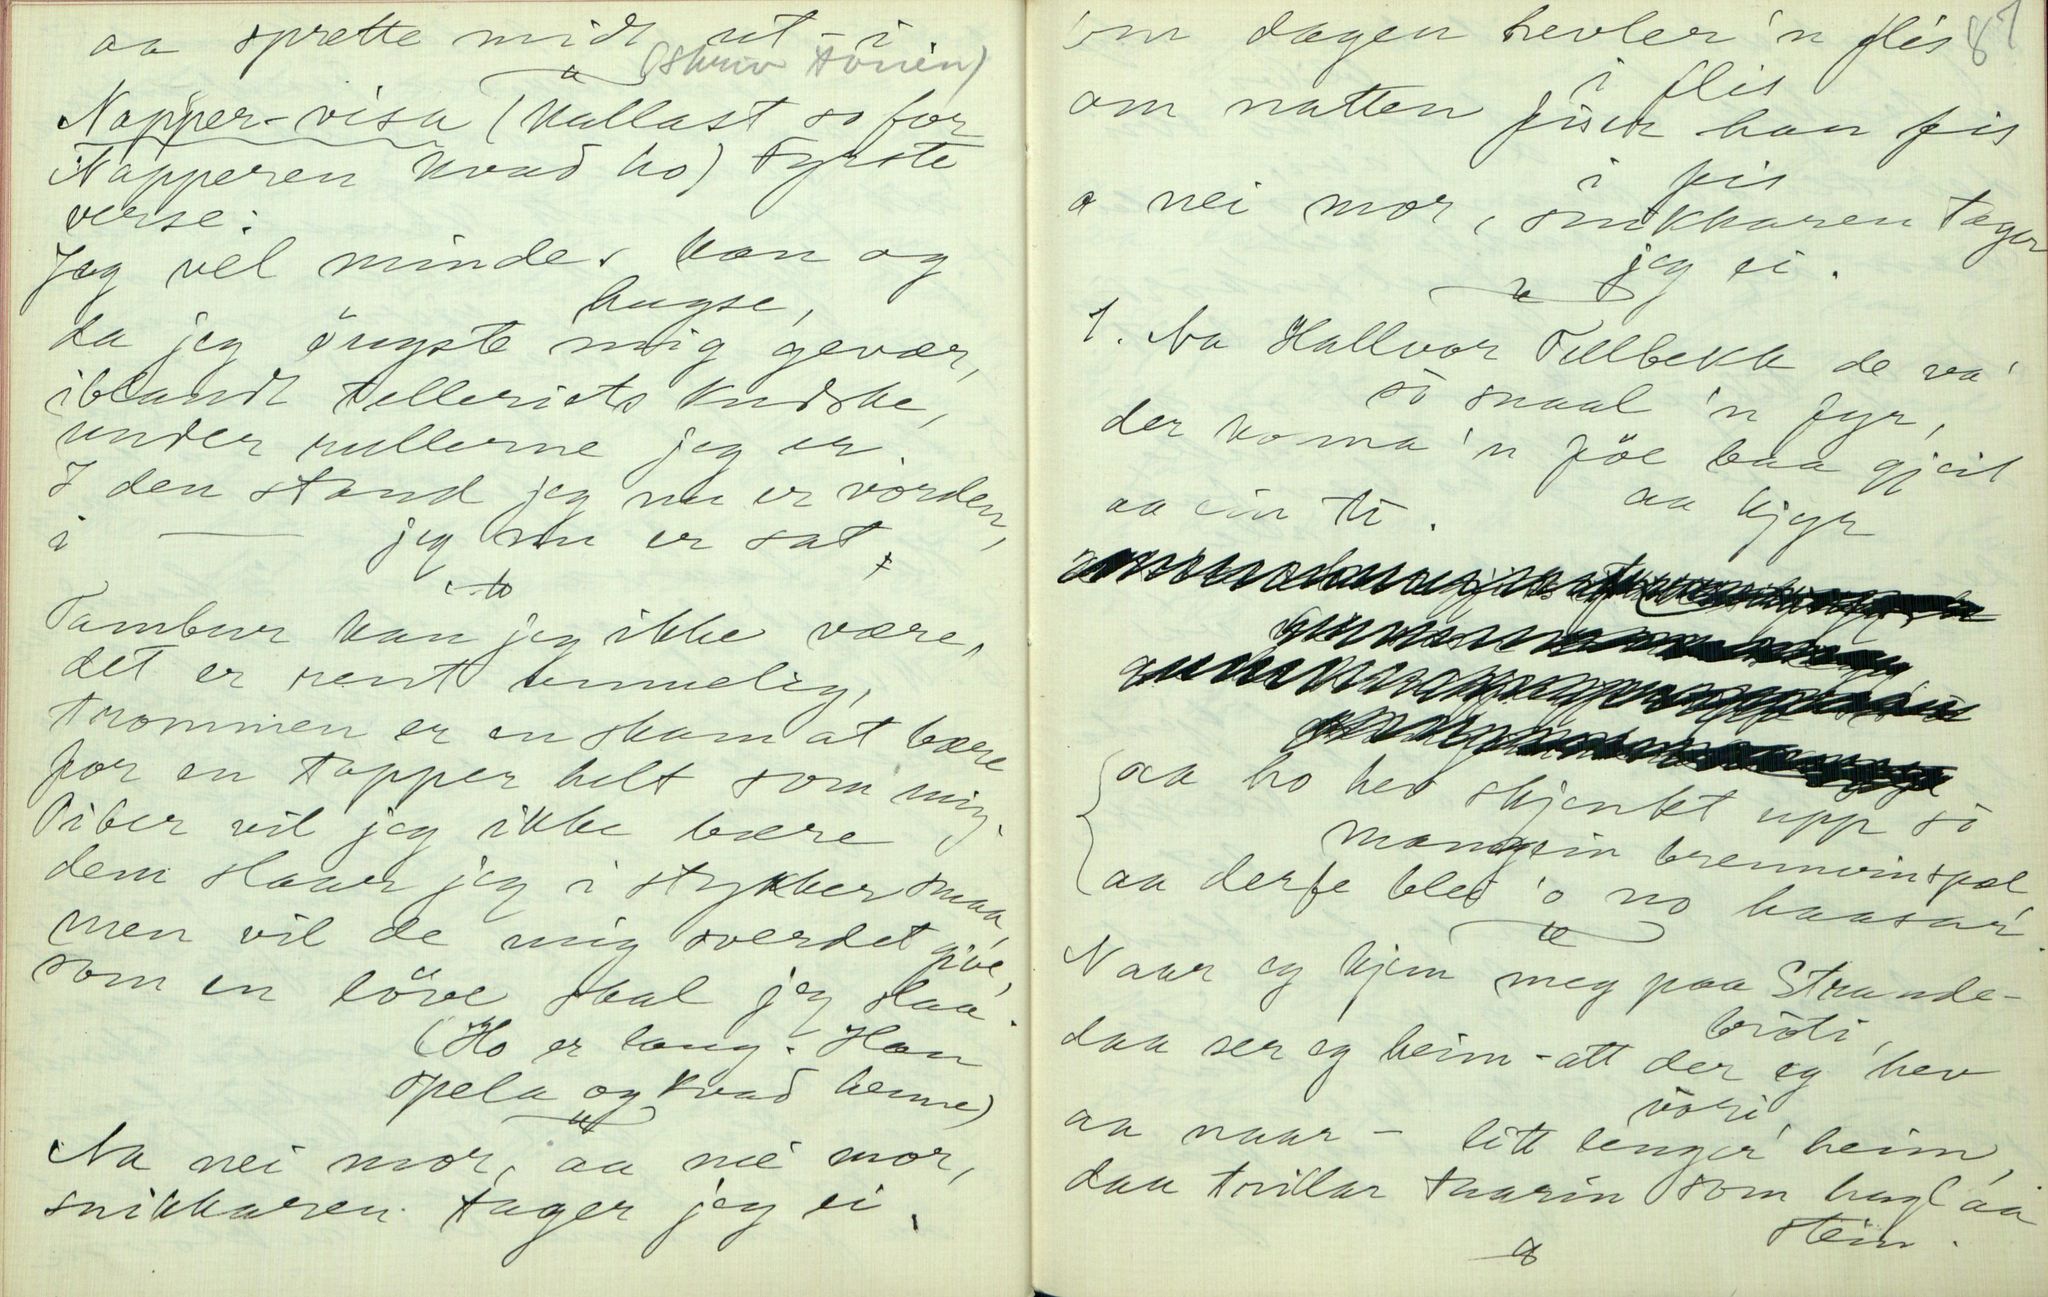 aa sprette midt ut-i.
(Skriv tonen)
Napper-visa (kallast so for
Napperen kvad ho) Fyrste
verse:
Jeg vel mindes kan og
hugse,
da jeg öngste mig gevær,
iblandt telleriets kudske,
under rullerne jeg er.
I den stand jeg nu er vorden,
i — jeg nu er sat.
Tambur kan jeg ikke være,
det er rent umuelig,
trommen er en skam at bære
for en tapper helt som mig.
Piber vil jeg ikke bære
dem slaar jeg i stykker smaa,
men vil de mig sverdet give,
som en löve skal jeg slaa.
(Ho er lang. Han
spela og kvad henne)
Aa nei mor, aa nei mor,
snikkaren tager jeg ei.
87
om dagen hevler 'n flis
i flis
om natten fiser han fis
i fis
a nei mor, snikkaren tager
jeg ei.
1. Aa Hallvor Tillbekk de va'
so snaal 'n fyr,
der koma 'n föe baa gjeit
aa kjyr
aa ein ti.
aa ho hev skjenkt upp so
mangein brennvinspæl,
aa derfe blei 'o no haasar'.
Naar eg kjem meg paa Strande-
broti,
daa ser eg heim-att der eg hev
vori
aa naar – litt lenger' heim,
daa trillar taarin som hagl aa
stein.